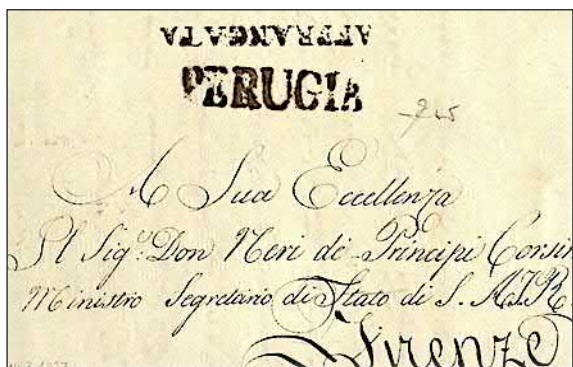 AFFRANCATA
PERUGIA
A Sua Eccellenza
Il Sig.r Don Neri de Principi Corsin
Ministro Segretario di Stato di S. A. I. R.
Firenze